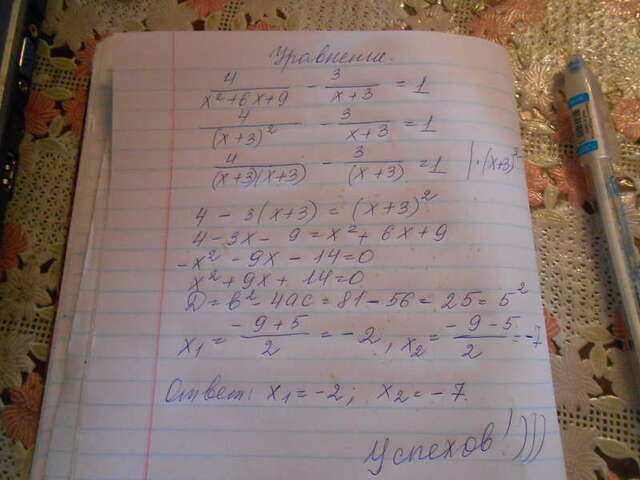 Уравнение.
4/(x²+6x+9) - 3/(x+3) = 1
4/(x+3)² - 3/(x+3) = 1
4/((x+3)(x+3)) - 3/(x+3) = 1 | ·(x+3)²
4 - 3(x+3) = (x+3)²
4 - 3x - 9 = x² + 6x + 9
-x² - 9x - 14 = 0
x² + 9x + 14 = 0
D = b² - 4ac = 81 - 56 = 25 = 5²
x₁ = (-9+5)/2 = -2, x₂ = (-9-5)/2 = -7
Ответ: x₁ = -2; x₂ = -7.
Успехов!)))